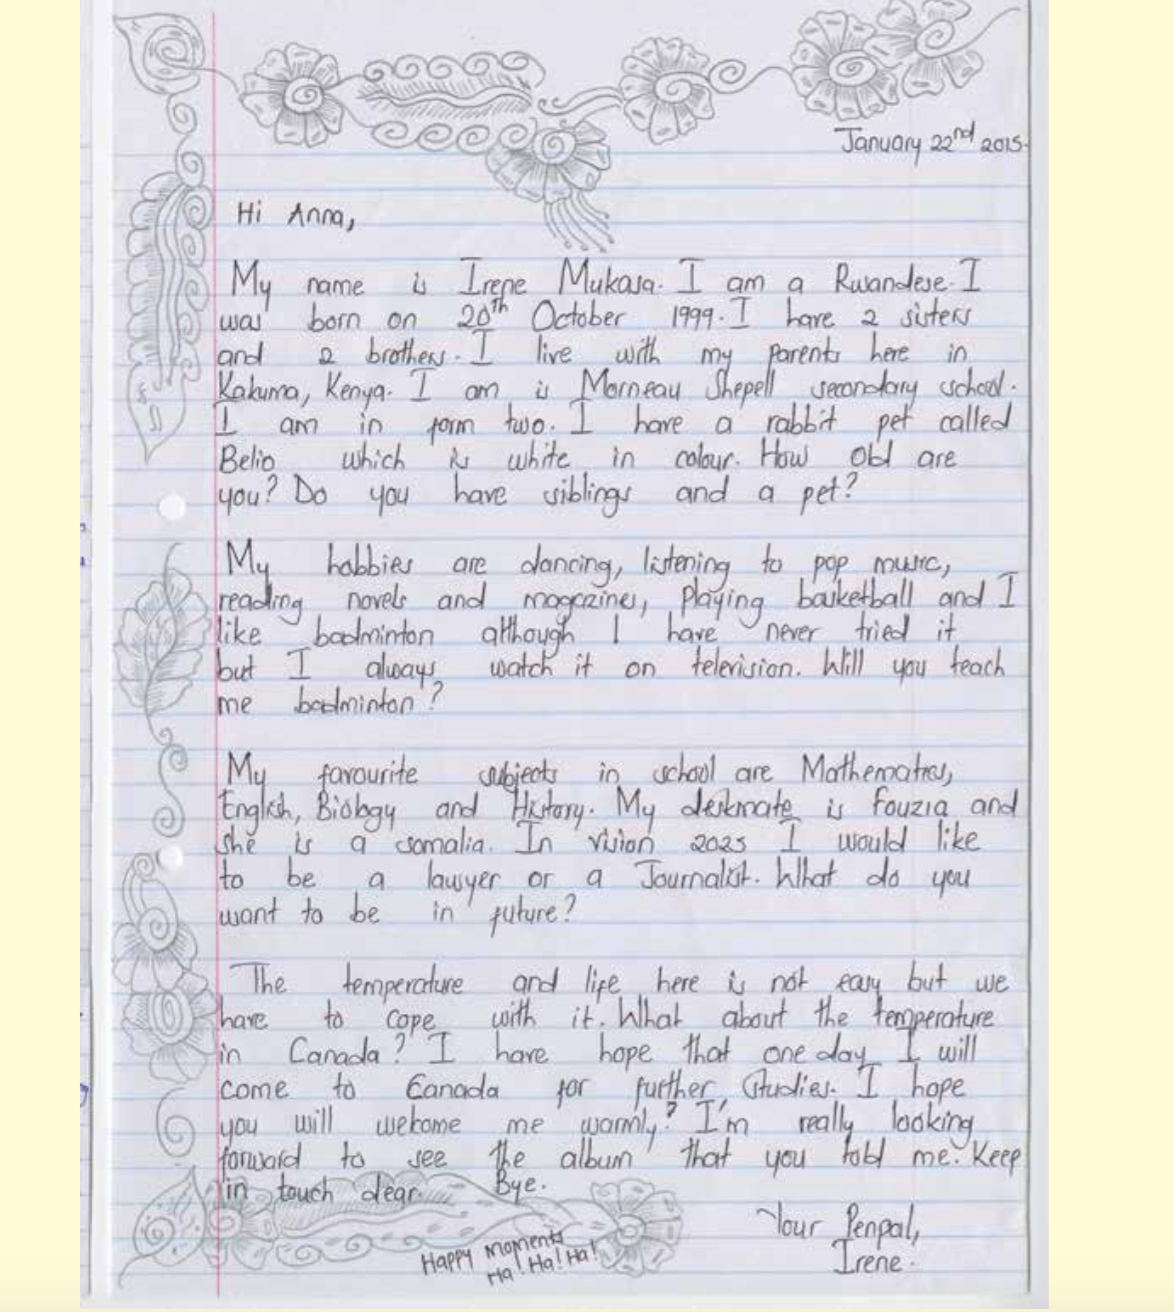 January 22nd 2015.
Hi Anna,
My name is Irene Mukasa. I am a Rwandese. I
was born on 20th October 1999. I have 2 sisters
and 2 brothers. I live with my parents here in
Kakuma, Kenya. I am is Morneau Shepell secondary school.
I am in form two. I have a rabbit pet called
Belio which is white in colour. How old are
you? Do you have siblings and a pet?
My hobbies are dancing, listening to pop music,
reading novels and magazines, playing basketball and I
like badminton although I have never tried it
but I always watch it on television. Will you teach
me badminton?
My favourite subjects in school are Mathematics,
English, Biology and History. My deskmate is Fouzia and
she is a somalia. In vision 2025 I would like
to be a lawyer or a Journalist. What do you
want to be in future?
The temperature and life here is not easy but we
have to cope with it. What about the temperature
in Canada? I have hope that one day I will
come to Canada for further studies. I hope
you will welcome me warmly? I'm really looking
forward to see the album that you told me. Keep
in touch dear. Bye.
Your Penpal,
Irene.
Happy Moments
Ha! Ha! Ha!